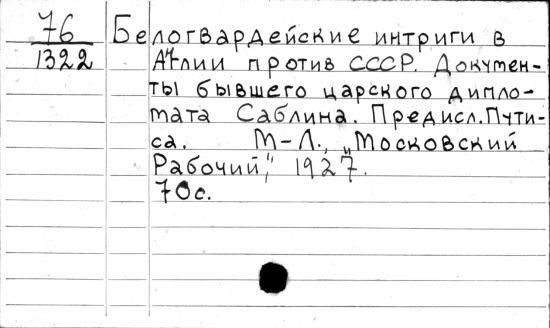 76 Белогвардейские интриги в
1322 Англии против СССР. Докумен-
ты бывшего царского дипло-
мата Саблина. Предисл. Пути-
са. М-Л., „Московский
Рабочий", 1927.
70с.